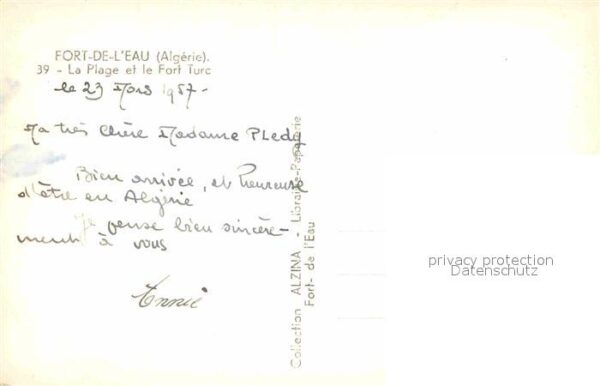 FORT-DE-L'EAU (Algérie).
39 - La Plage et le Fort Turc
le 23 Mars 1957-
Ma très Chère Madame PLedy
Bien arrivée, et heureuse
d'être en Algérie
Je pense bien sincère-
ment à vous
Annie
Collection ALZINA - Librairie-Papeterie
Fort- de l'Eau
privacy protection
Datenschutz